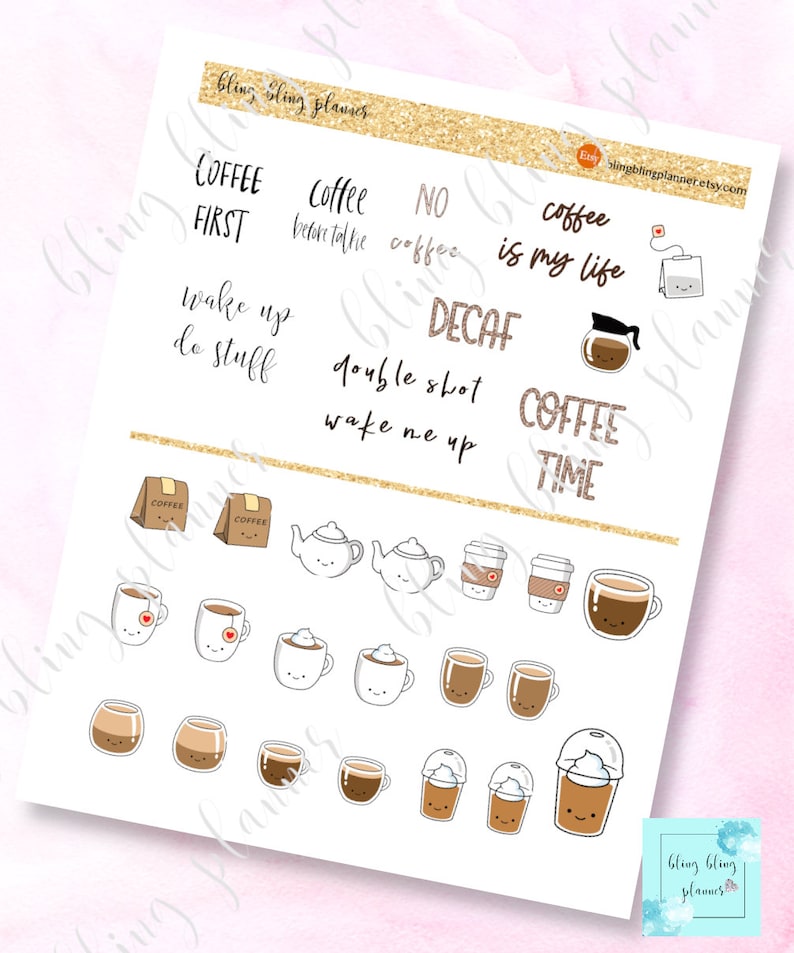 bling bling planner
Etsy blingblingplanner.etsy.com
COFFEE
FIRST
Coffee
before talkie
NO
coffee
coffee
is my life
wake up
do stuff
DECAF
double shot
wake me up
COFFEE
TIME
COFFEE
COFFEE
bling bling
planner
bling bling planner
bling bling planner
bling bling planner
bling bling planner